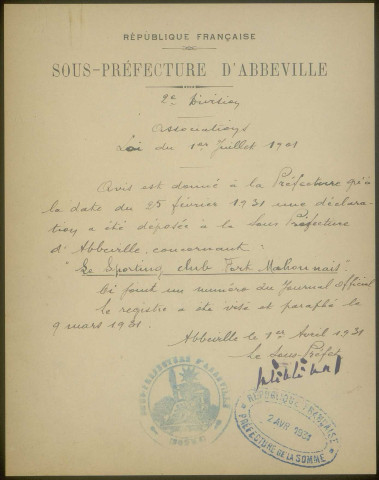 RÉPUBLIQUE FRANÇAISE
SOUS-PRÉFECTURE D'ABBEVILLE
2e Division
Associations
Loi du 1er Juillet 1901
Avis est donné à la Préfecture qu'à
la date du 25 février 1931 une déclara-
tion a été déposée à la Sous Préfecture
d'Abbeville concernant :
"Le Sporting club Fort Mahonnais"
Ci joint un numéro du Journal Officiel
Le registre a été visé et paraphé le
9 mars 1931.
Abbeville le 1er Avril 1931
Le Sous Préfet
SOUS-PRÉFECTURE D'ABBEVILLE
RÉPUBLIQUE FRANÇAISE
2 AVR 1931
PRÉFECTURE DE LA SOMME